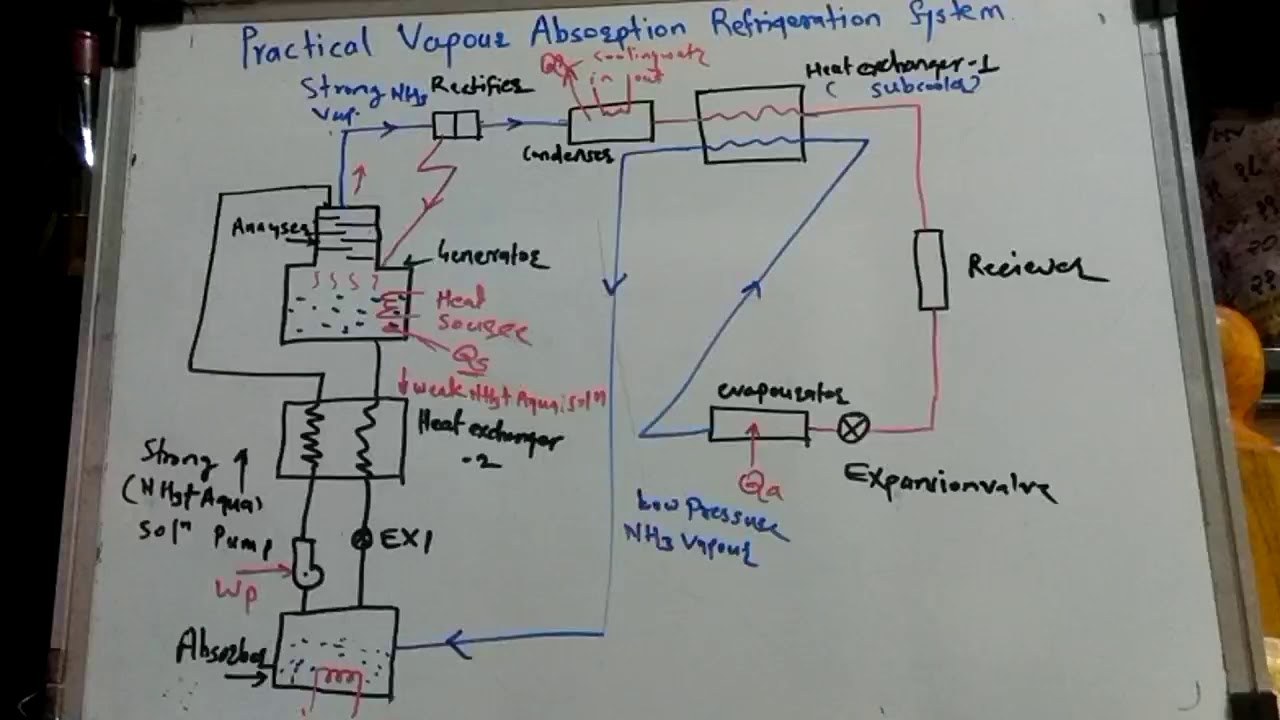 Practical Vapour Absorption Refrigeration System
Strong NH3
Vap.
Rectifier
cooling wate
in out
Condenser
Heat exchanger-1
( subcooler)
Anayser
Generator
Heat
Sourec
Qs
weak NH3+Aqua soln
Heat exchanger
-2
Strong
(NH3+Aqua)
Soln Pump
EX1
Wp
Absorber
Reciever
evapourator
Qa
Expansion valve
Low Pressure
NH3 Vapour